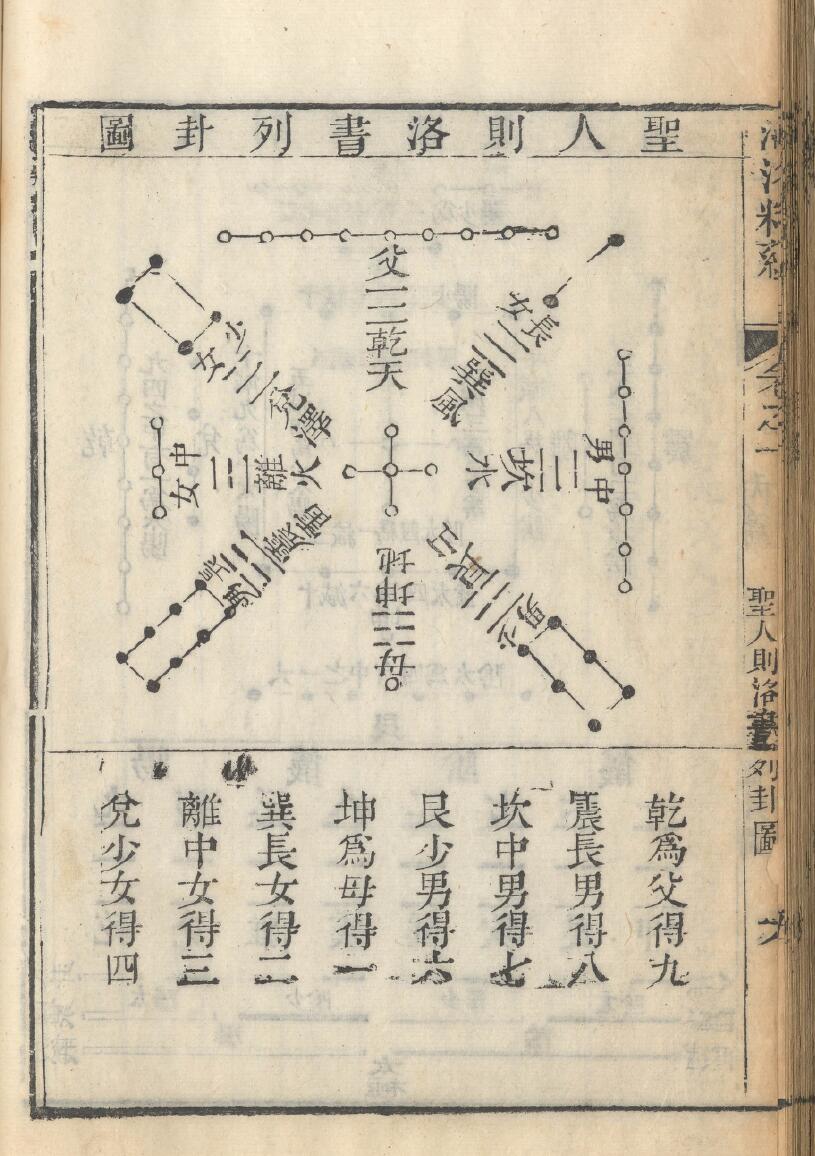 聖人則洛書列卦圖
父☰乾天
長女☴巽風
中男☵坎水
少男☶艮山
母☷坤地
長男☳震雷
中女☲離火
少女☱兌澤
乾為父得九
震長男得八
坎中男得七
艮少男得六
坤為母得一
巽長女得二
離中女得三
兌少女得四
河洛精蘊
卷之一
聖人則洛書列卦圖